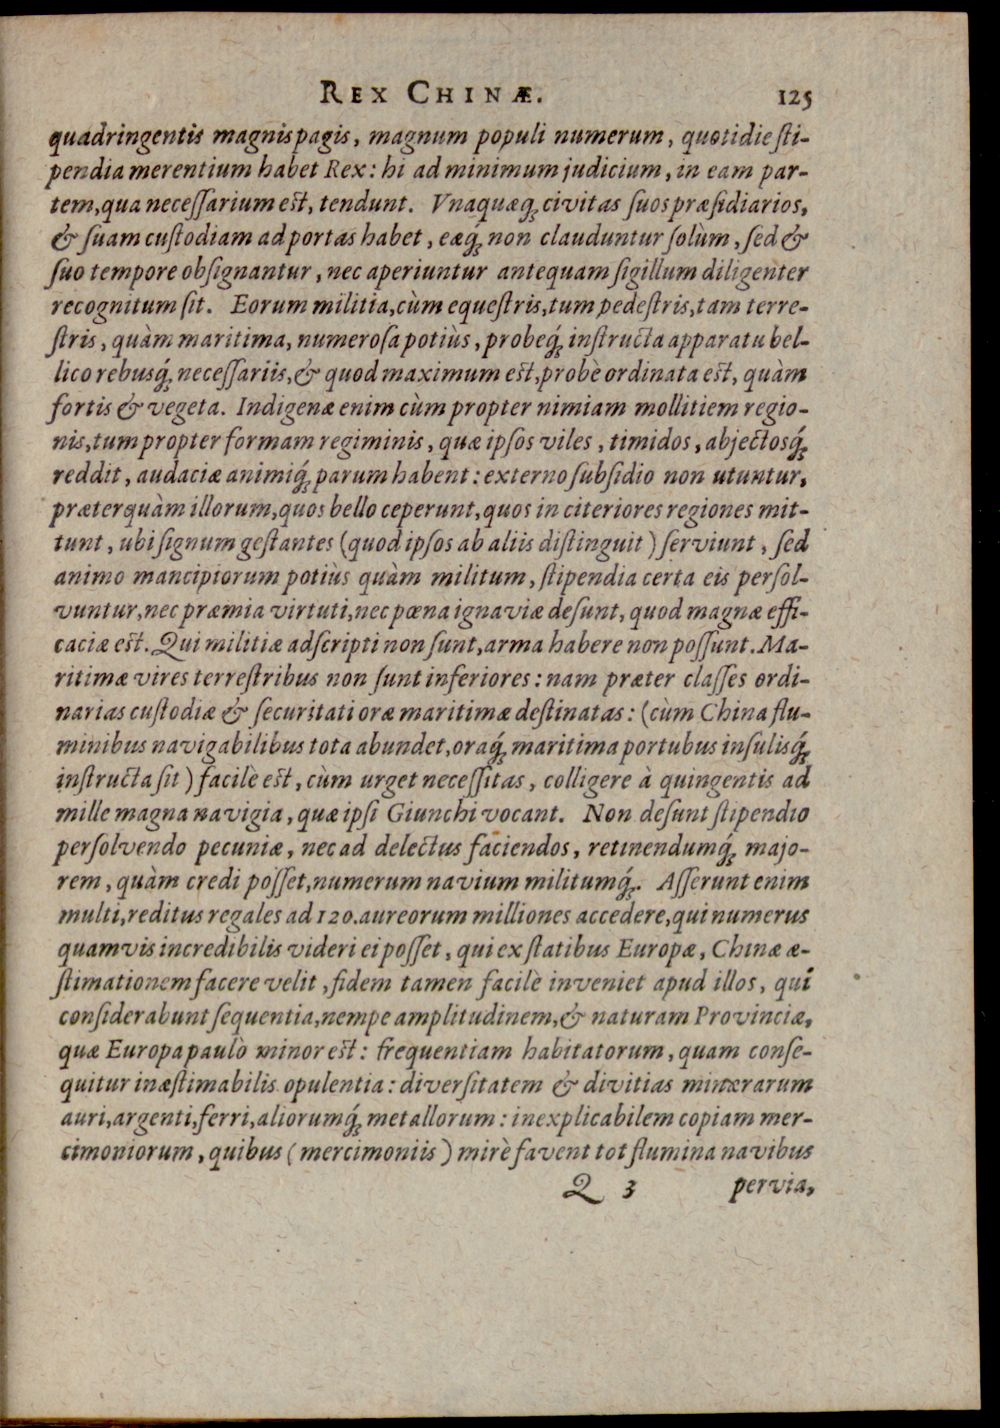 REX CHINÆ. 125
quadringentis magnis pagis, magnum populi numerum, quotidie ſti-
pendia merentium habet Rex: hi ad minimum judicium, in eam par-
tem, qua neceſſarium est, tendunt. Vnaquæq́; civitas ſuos præſidiarios,
& ſuam cuſtodiam ad portas habet, eæq́; non clauduntur ſolùm, ſed &
ſuo tempore obſignantur, nec aperiuntur antequam ſigillum diligenter
recognitum ſit. Eorum militia, cùm equeſtris, tum pedeſtris, tam terre-
ſtris, quàm maritima, numeroſa potiùs, probeq́; inſtructa apparatu bel-
lico rebusq́; neceſſariis, & quod maximum est, probè ordinata est, quàm
fortis & vegeta. Indigenæ enim cùm propter nimiam mollitiem regio-
nis, tum propter formam regiminis, quæ ipſos viles, timidos, abjectosq́;
reddit, audaciæ animiq́; parum habent: externo ſubſidio non utuntur,
præterquàm illorum, quos bello ceperunt, quos in citeriores regiones mit-
tunt, ubi ſignum geſtantes (quod ipſos ab aliis diſtinguit) ſerviunt, ſed
animo mancipiorum potiùs quàm militum, ſtipendia certa eis perſol-
vuntur, nec præmia virtuti, nec pœna ignaviæ deſunt, quod magnæ effi-
caciæ est. Qui militiæ adſcripti non ſunt, arma habere non poſſunt. Ma-
ritimæ vires terreſtribus non ſunt inferiores: nam præter claſſes ordi-
narias cuſtodiæ & ſecuritati oræ maritimæ deſtinatas: (cùm China flu-
minibus navigabilibus tota abundet, oraq́; maritima portubus inſulisq́;
inſtructa ſit) facilè est, cùm urget neceſſitas, colligere à quingentis ad
mille magna navigia, quæ ipſi Giunchi vocant. Non deſunt ſtipendio
perſolvendo pecuniæ, nec ad delectus faciendos, retinendumq́; majo-
rem, quàm credi poſſet, numerum navium militumq́;. Aſſerunt enim
multi, reditus regales ad 120. aureorum milliones accedere, qui numerus
quamvis incredibilis videri ei poſſet, qui ex ſtatibus Europæ, Chinæ æ-
ſtimationem facere velit, fidem tamen facilè inveniet apud illos, qui
conſiderabunt ſequentia, nempe amplitudinem, & naturam Provinciæ,
quæ Europa paulò minor est: frequentiam habitatorum, quam conſe-
quitur inæſtimabilis opulentia: diverſitatem & divitias minærarum
auri, argenti, ferri, aliorumq́; metallorum: inexplicabilem copiam mer-
cimoniorum, quibus (mercimoniis) mirè favent tot flumina navibus
Q 3 pervia,